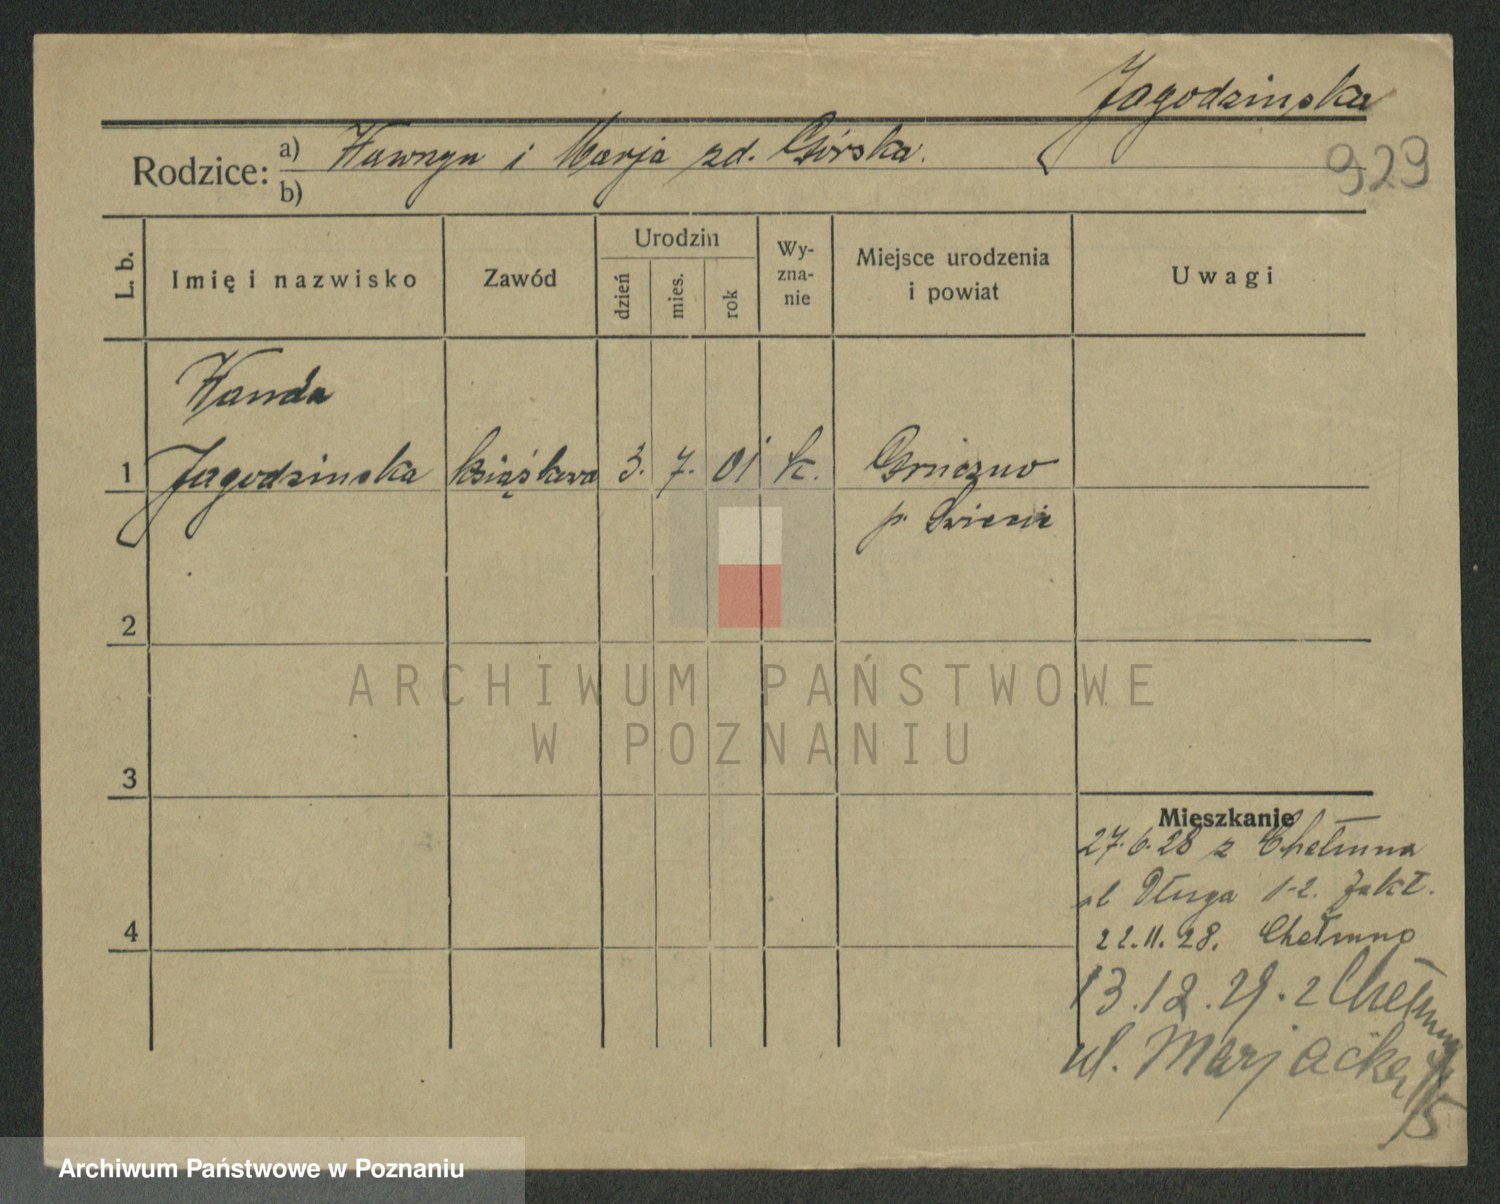 Jagodzinska
929
Rodzice: a) Wawrzyn i Marja zd. Górska.
b)
L. b.
Imię i nazwisko
Zawód
Urodzin
dzień
mies.
rok
Wy-
zna-
nie
Miejsce urodzenia
i powiat
Uwagi
Wanda
1 Jagodzinska 3. 7. 01 k. Gruczno
p. Swiecie
2
3
4
Mieszkanie
27.6.28 z Chełmna
ul Długa 1-2.
22.11.28. Chełmno
13.12.29. z Chełmna
ul. Marjacka
ARCHIWUM PAŃSTWOWE
W POZNANIU
Archiwum Państwowe w Poznaniu